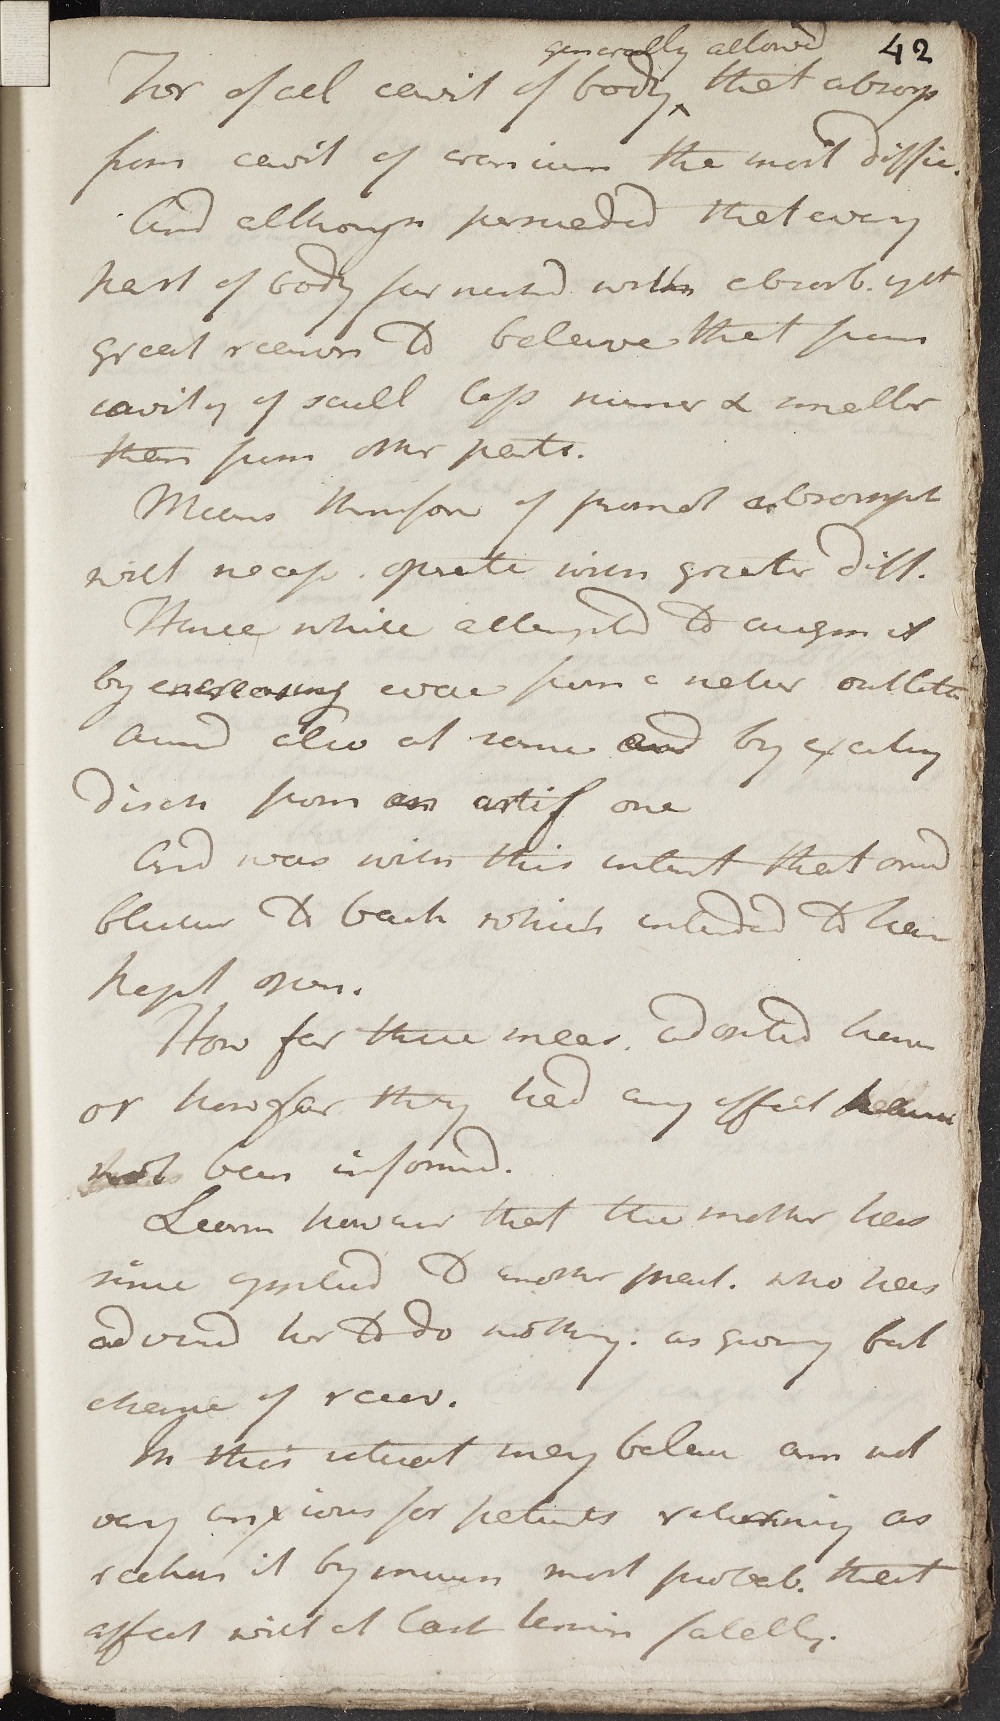 42
generally allowed
For of all cavit of body ^ that absorp
from cavit of cranium the most diffic.
And although persuaded that every
part of body furnished with absorb. yet
great reason to beleive that from
cavity of scull less numer & smaller
than from other parts.
Means therefore of promot absorpt
will necess. operate with greater diff.
Hence while attempted to augm it
by increasing evac from natur outlets
aimd also at same end by exciting
disch from an artif one
And was with this intent that ordd
blister to back which intended to have
kept open.
How far these meas. adopted have
or how far they had any effect have
not been informd.
Learn however that the mother has
since applied to another pract. who has
advisd her to do nothing. as giving best
chance of recov.
In this situat may beleive am not
very anxious for patients returning as
reckon it by much most probab. that
affect will at last termin fatally.